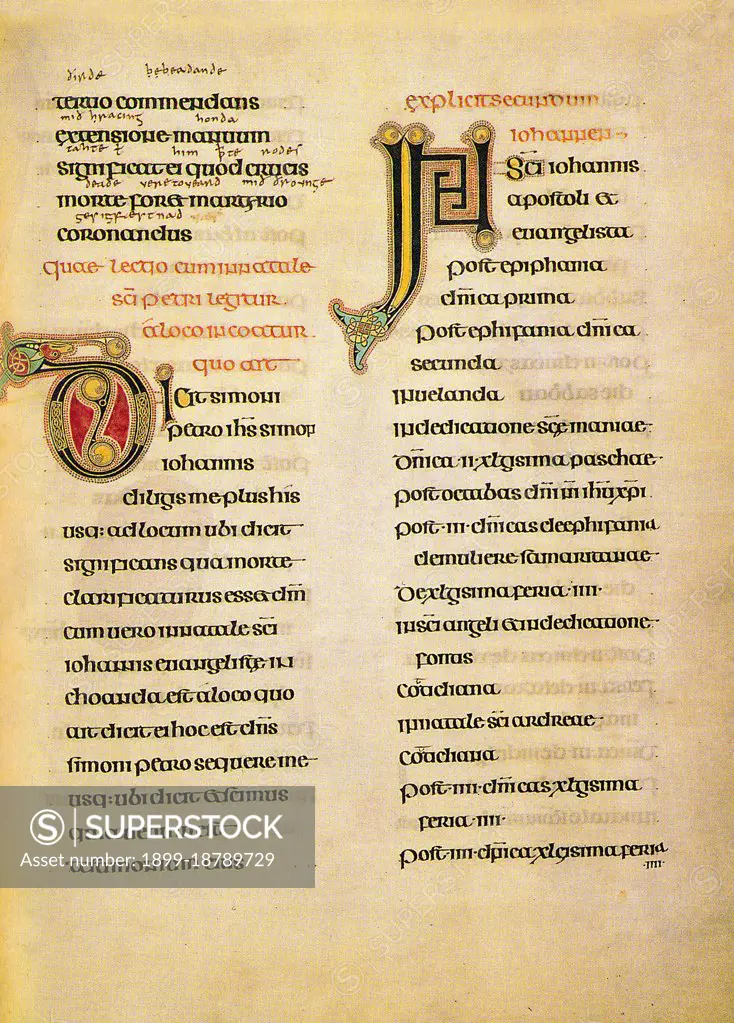 dindæ bebeadande
tertio commendans
mid hracing honda
extensione manuum
tahte him þte rodes
significat ei quod crucis
deade mid
morte fore martyrio
gerigfæstnad
coronandus
quae lectio cum in natale
sci petri legitur
a loco incoatur
quo ait
Dicit simoni
petro ihs simon
iohannis
diligis me plus his
usq: ad locum ubi dicit
significans qua morte
clarificaturus esset dm
cum uero in natale sci
iohannis euangelistę in
choanda est a loco quo
ait dicit ei hoc est dns
simoni petro sequere me
usq: ubi dicit et scimus
quia uerum est
testimonium eius
explicit secundum
iohannen
IN sci iohannis
apostoli et
euangelista
post epiphania
dmica prima
post ephifania dmica
secunda
In uelanda
In dedicatione scæ mariae
Dmica ·ii· xlgisima paschae
post octabas dmi ihu xpi
post ·iii· dmicas de ephifania
de muliere samaritanae
De xlgisima feria ·iiii·
In sci angeli et in dedicatione
fontis
Cotidiana
In natale sci andreae
Cotidiana
post ·iiii· dmicas xlgisima
feria ·iiii·
post ·iii· dmica xlgisima feria
·iiii·
SUPERSTOCK
Asset number: 1899-18789729